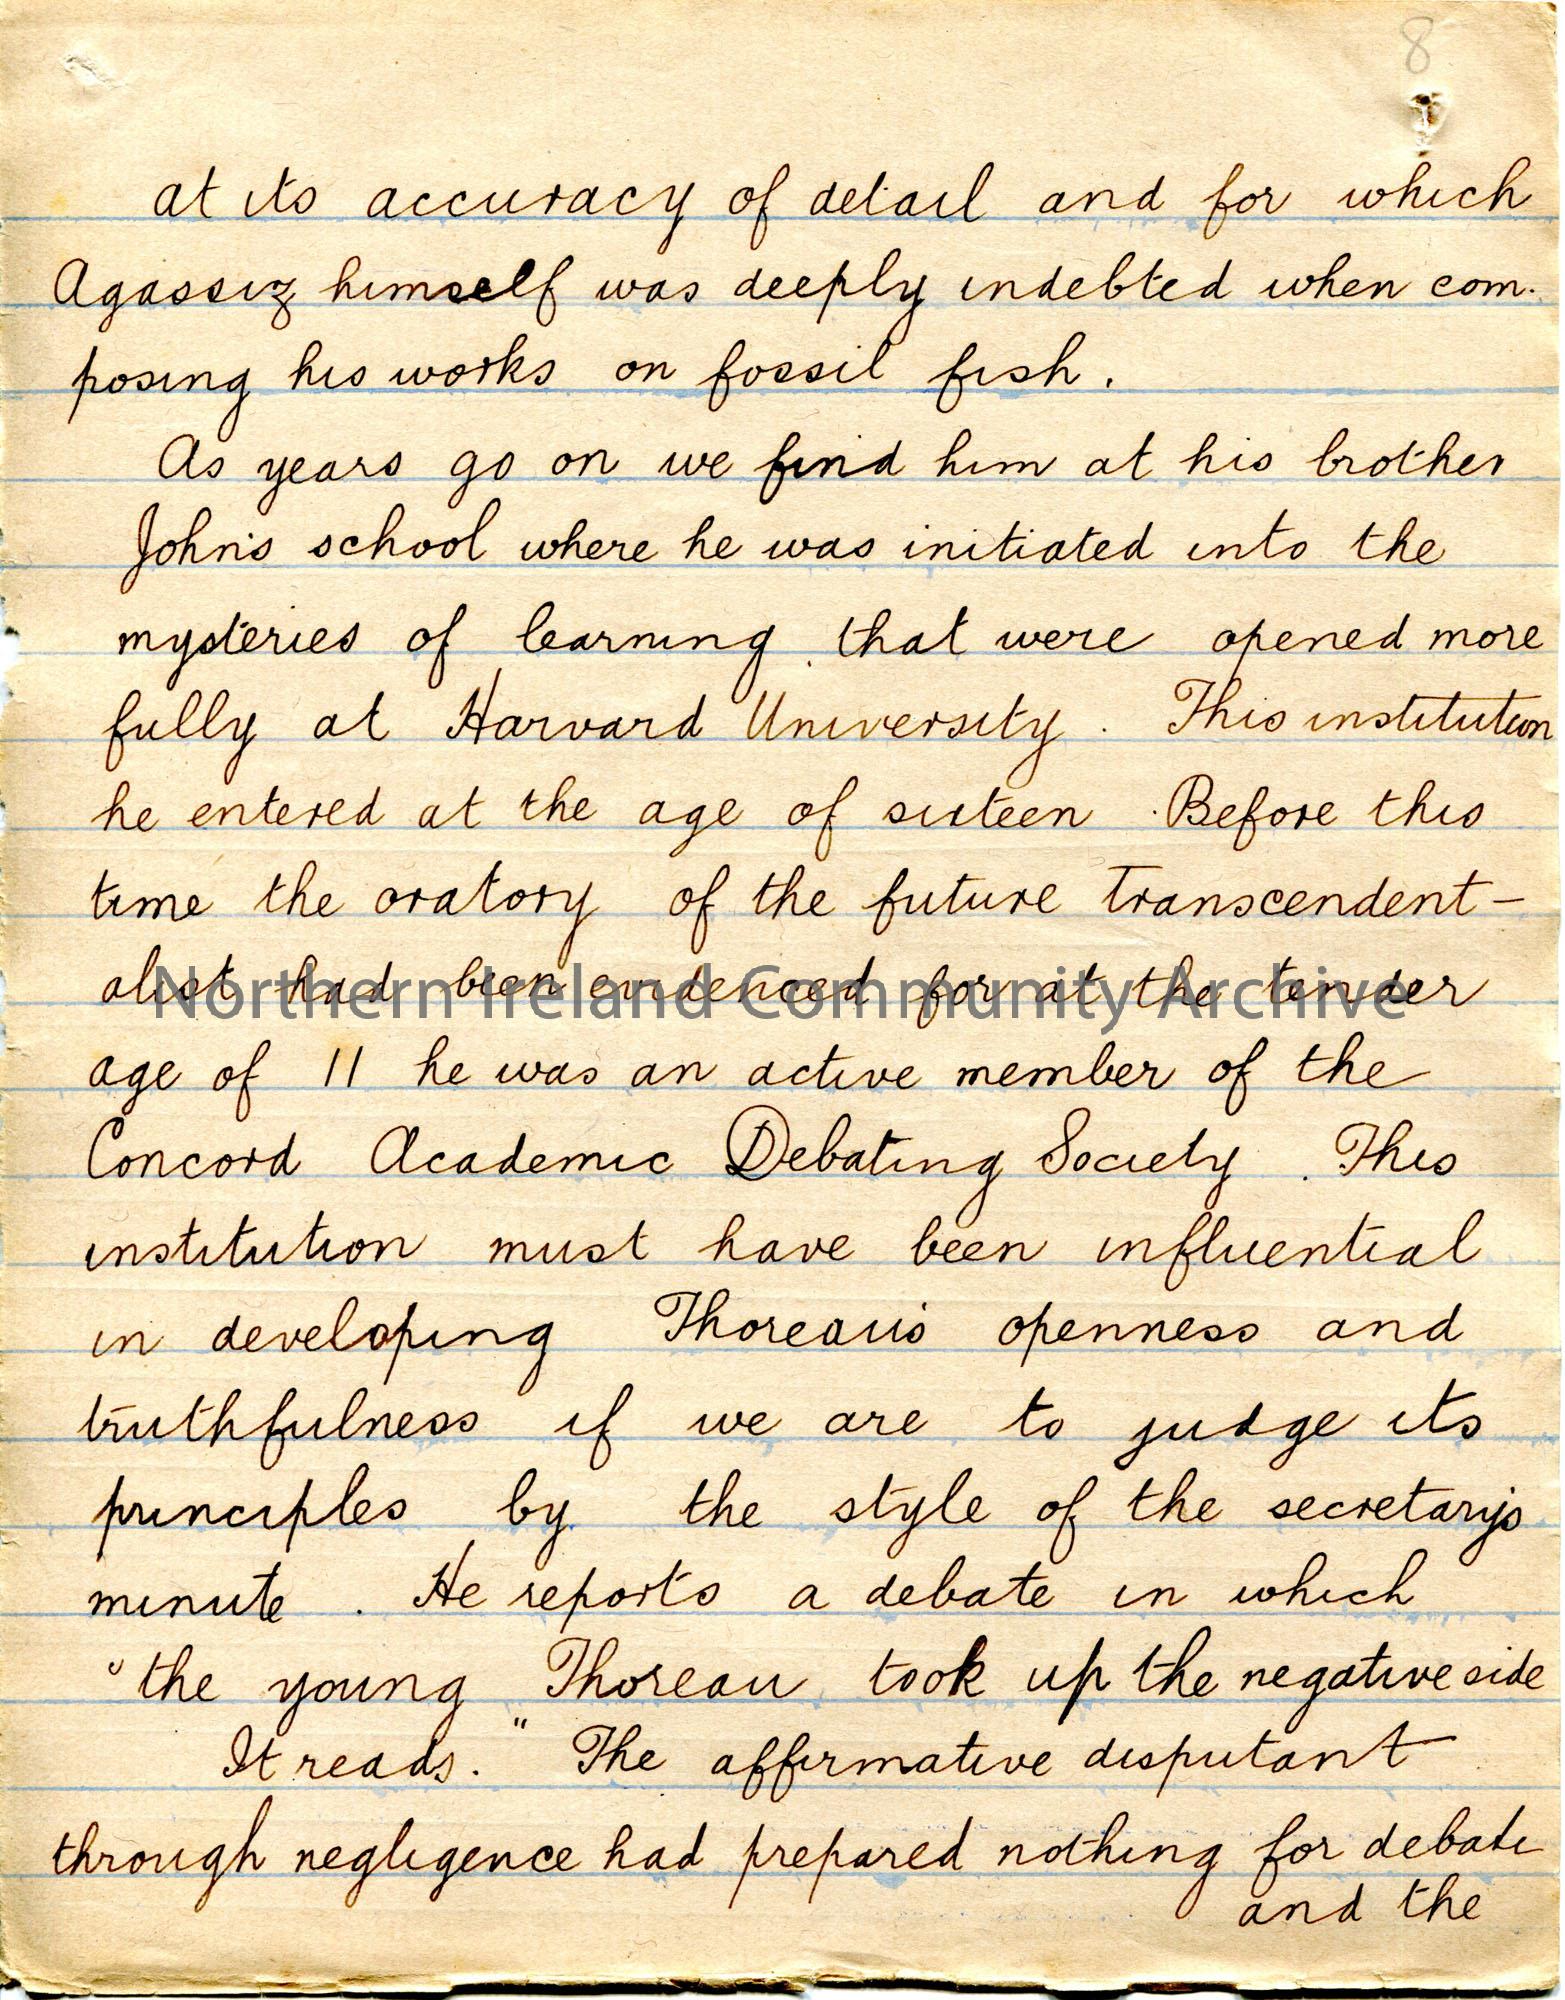 8
at its accuracy of detail and for which
Agassiz himself was deeply indebted when com-
posing his works on fossil fish.
As years go on we find him at his brother
John's school where he was initiated into the
mysteries of learning that were opened more
fully at Harvard University. This institution
he entered at the age of sixteen. Before this
time the oratory of the future Transcendent-
alist had been evidenced for at the tender
Northern Ireland Community Archive
age of 11 he was an active member of the
Concord Academic Debating Society. This
institution must have been influential
in developing Thoreau's openness and
truthfulness if we are to judge its
principles by the style of the secretary's
minute. He reports a debate in which
"the young Thoreau took up the negative side
It reads. " The affirmative disputant
through negligence had prepared nothing for debate
and the